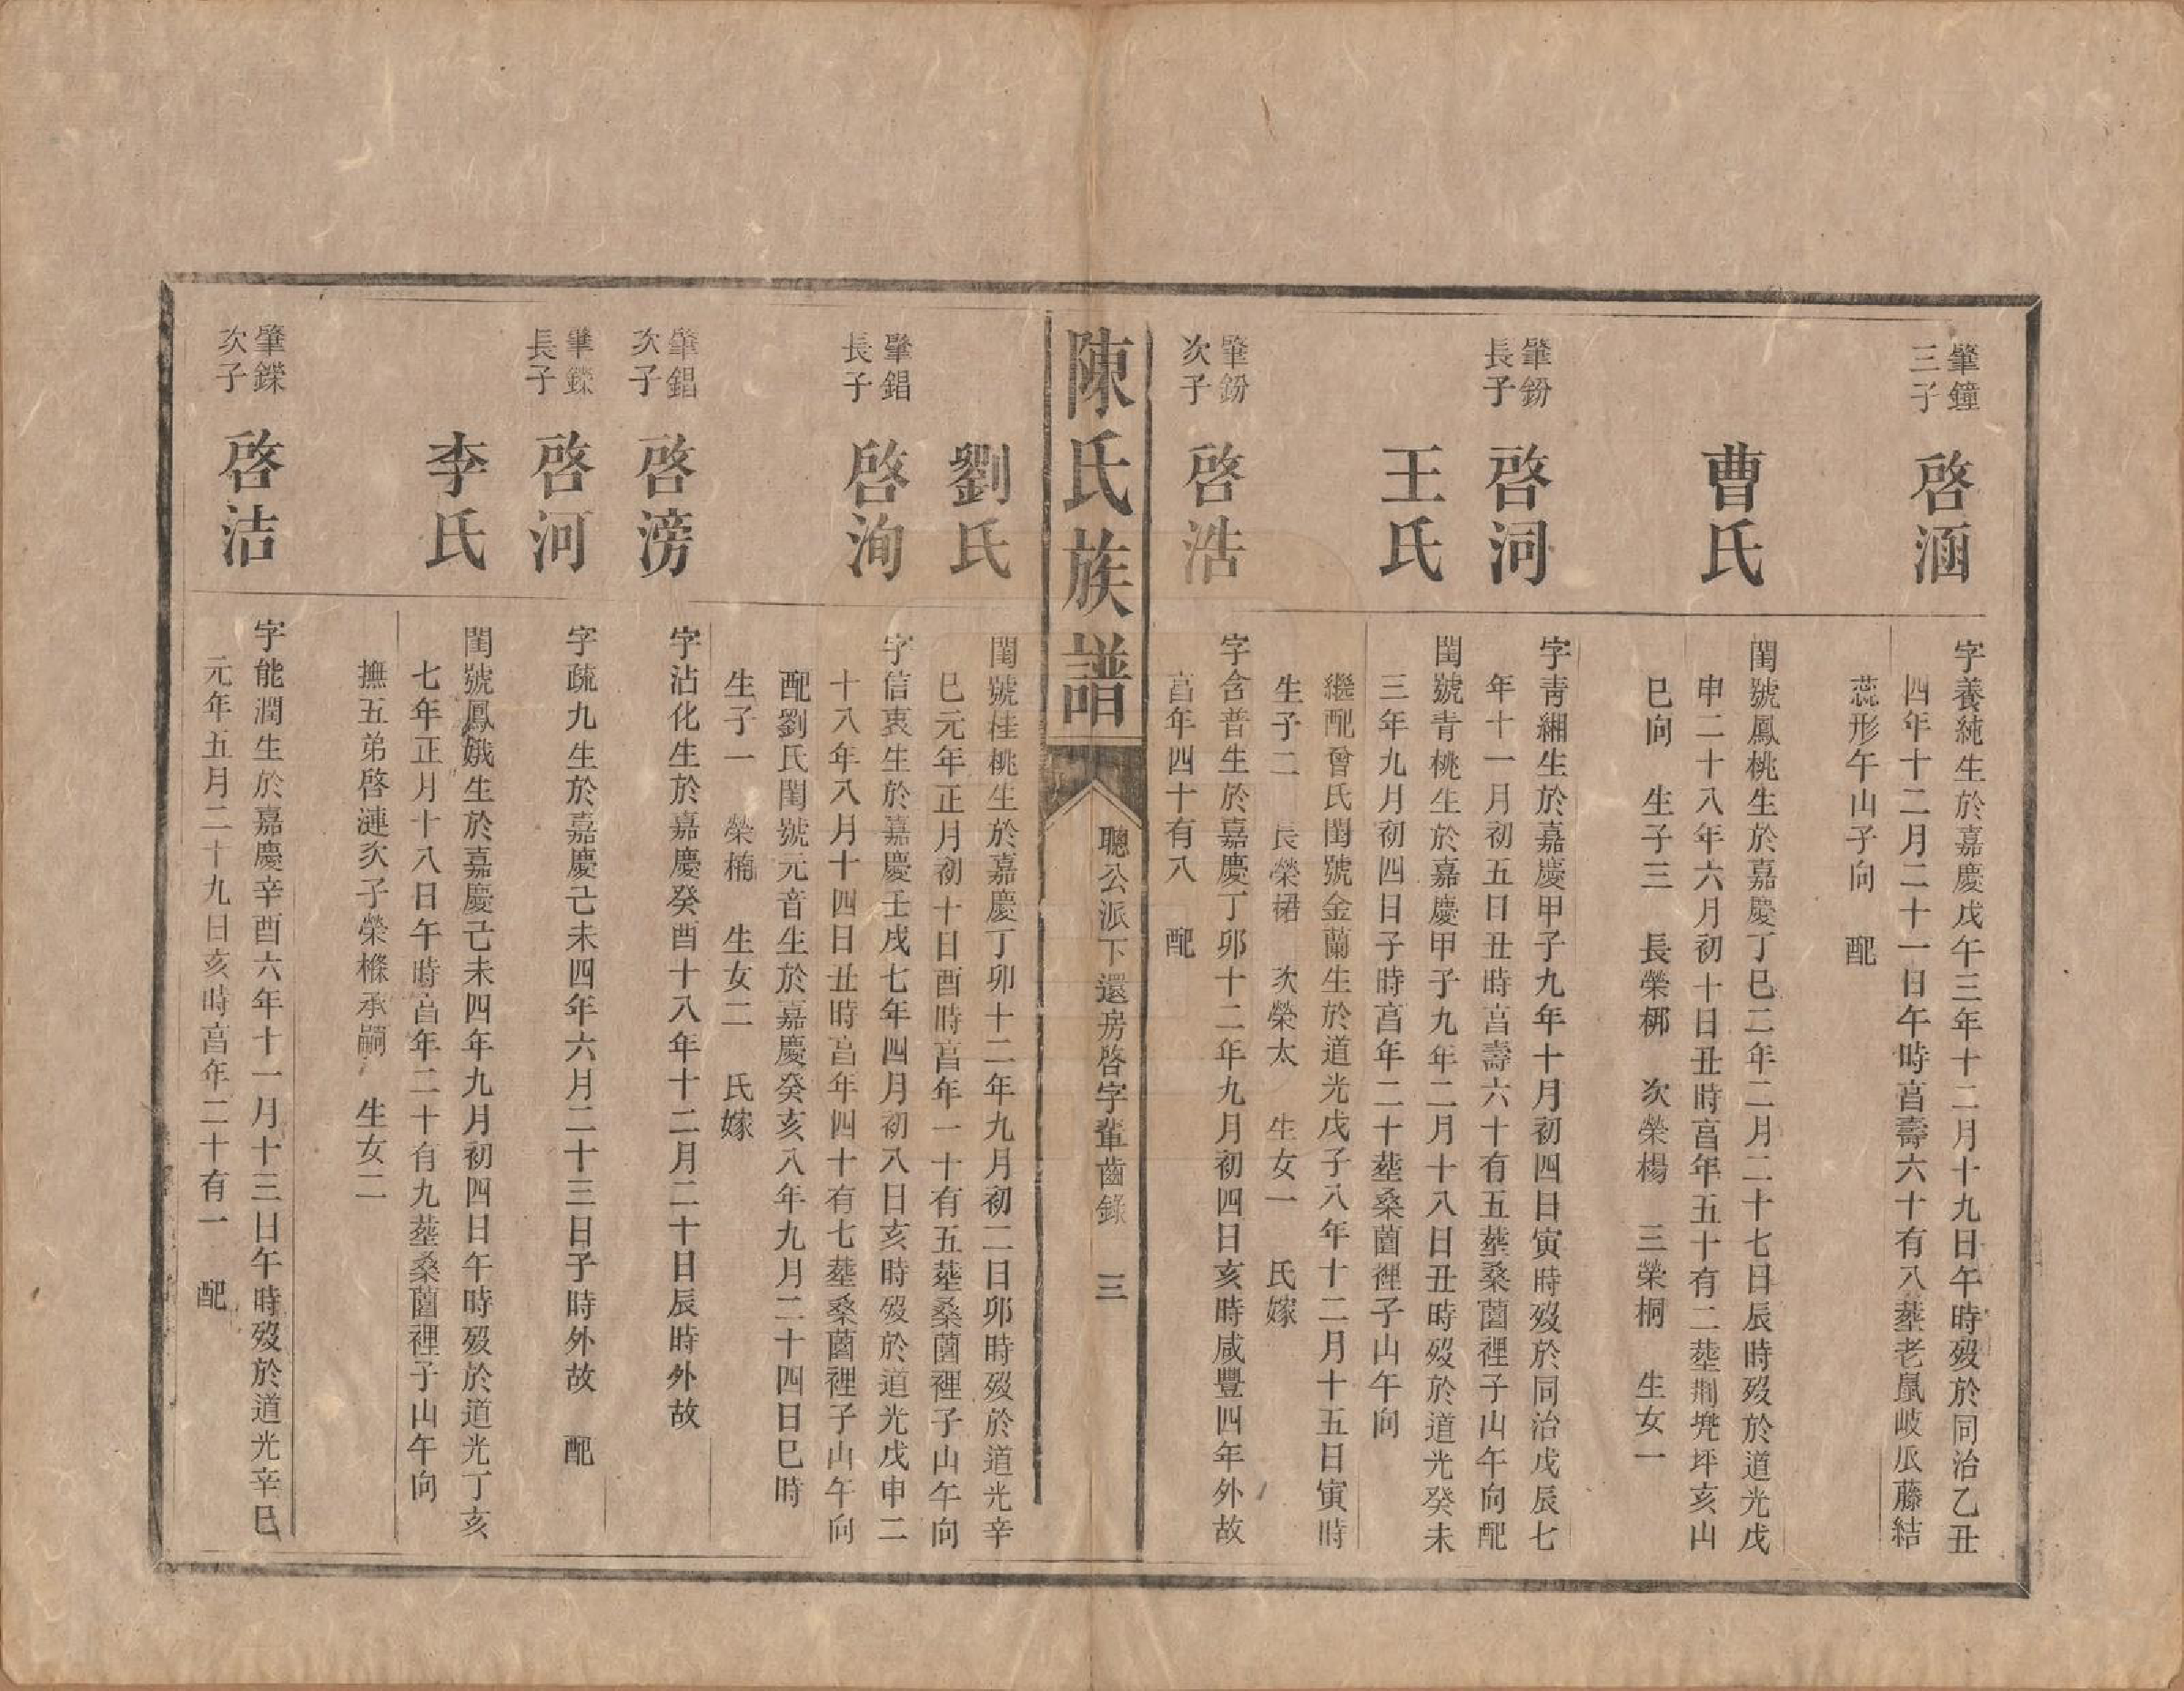 肇鐘
三子
啓涵
字養純生於嘉慶戊午三年十二月十九日午時歿於同治乙丑
四年十二月二十一日午時亯壽六十有八塟老鼠岐瓜藤結
蕊形午山子向　配
曹氏
閨號鳳桃生於嘉慶丁巳二年二月二十七日辰時歿於道光戊
申二十八年六月初十日丑時亯年五十有二塟荊凳坪亥山
巳向　生子三　長榮梆　次榮楊　三榮桐　生女一
肇鈖
長子
啓洞
字靑緗生於嘉慶甲子九年十月初四日寅時歿於同治戊辰七
年十一月初五日丑時亯壽六十有五塟桑薗裡子山午向配
王氏
閨號青桃生於嘉慶甲子九年二月十八日丑時歿於道光癸未
三年九月初四日子時亯年二十塟桑薗裡子山午向
繼配曾氏閨號金蘭生於道光戊子八年十二月十五日寅時
生子二　長榮桾　次榮太　生女一　氏嫁
肇鈖
次子
啓浩
字含普生於嘉慶丁卯十二年九月初四日亥時咸豐四年外故
亯年四十有八　配
陳氏族譜
聰公派下還房啓字輩齒錄　三
劉氏
閨號桂桃生於嘉慶丁卯十二年九月初二日卯時歿於道光辛
巳元年正月初十日酉時亯年一十有五塟桑薗裡子山午向
肇錩
長子
啓洵
字信衷生於嘉慶壬戌七年四月初八日亥時歿於道光戊申二
十八年八月十四日丑時亯年四十有七塟桑薗裡子山午向
配劉氏閨號元音生於嘉慶癸亥八年九月二十四日巳時
生子一　榮楠　生女二　氏嫁
肇錩
次子
啓滂
字沾化生於嘉慶癸酉十八年十二月二十日辰時外故
肇鑅
長子
啓河
字疏九生於嘉慶己未四年六月二十三日子時外故　配
李氏
閨號鳳娥生於嘉慶己未四年九月初四日午時歿於道光丁亥
七年正月十八日午時亯年二十有九塟桑薗裡子山午向
撫五弟啓漣次子榮樤承嗣　生女二
肇鑅
次子
啓洁
字能潤生於嘉慶辛酉六年十一月十三日午時歿於道光辛巳
元年五月二十九日亥時亯年二十有一　配